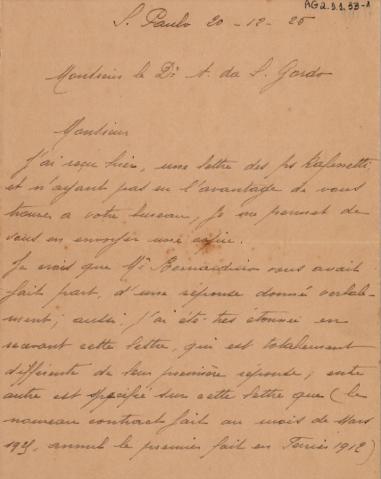 AG2.9.1.53-1
S. Paulo 20-12-25
Monsieur le Dr A. da S. Gordo
Monsieur
J'ai reçu hier, une lettre des
et n'ayant pas eu l'avantage de vous
trouver a votre bureau, je me permet de
vous en envoyer une copie.
Je crois que Mr Bernardino vous avait
fait part, d'une réponse donné verbale-
ment; aussi j'ai été tres étonnée en
recevant cette lettre, qui est totalement
differente de leur première reponse; entre
autre est specifié sur cette lettre que (le
nouveau contract fait au mois de Mars
annul le premier fait en Fevrier 1912)